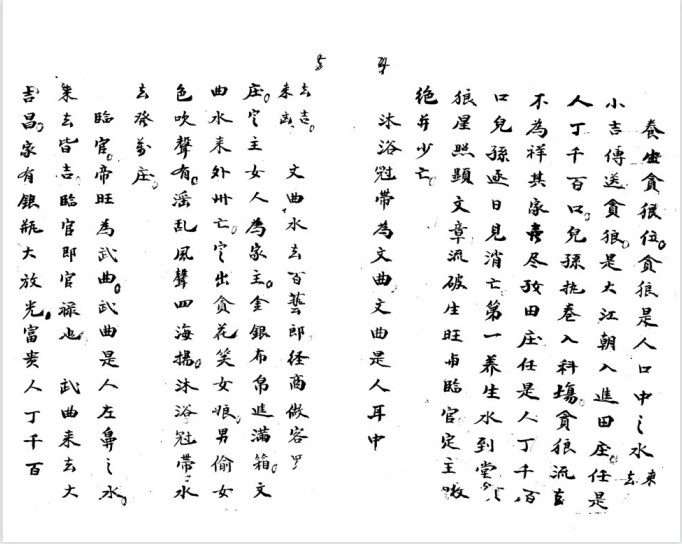 養生貪狼位。貪狼是人口中之水来去
小吉傳送貪狼。是大江朝入進田庄。任是
人丁千百口。兒孫抱卷入科場。貪狼流去
不為祥其家喪尽孜田庄任是人丁千百
口兒孫逐日見消亡第一養生水到堂
狼星照顯文章流破生旺 臨官定主敗
绝并少亡。
沐浴冠帶為文曲文曲是人耳中
去吉。来凶 文曲水去百藝郎经商做客
庄。定主女人為家主。金銀布帛進滿箱。文
曲水来外州亡。定出貪花笑女娘。男偷女
色吹聲有。滛乱風聲四海揚。沐浴冠帶水
去發萬庄。
臨官。帝旺為武曲。武曲是人左鼻之水。
来去皆吉。臨官郎官禄也 武曲来去大
吉昌。家有銀瓶大放光。富贵人丁千百